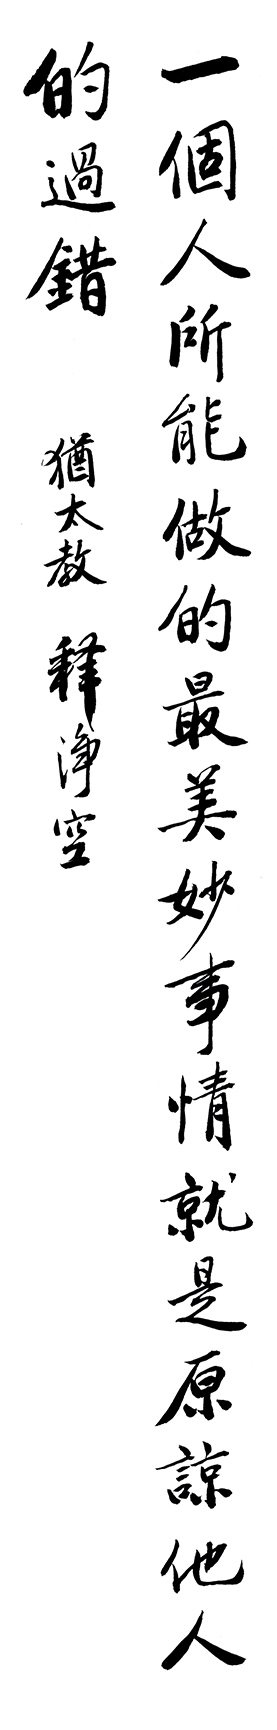 一個人所能做的最美妙事情就是原諒他人
的過錯 猶太教 釋淨空